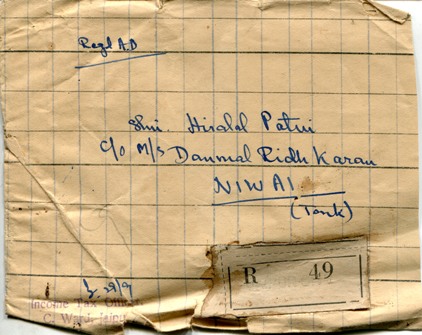 Regd A.D
Shri. Hiralal Patni
C/o M/s Danmal Ridh Karan
NIWAI
(Tonk)
R 49
29/9
Income Tax Officer
C. Ward, Jaipur